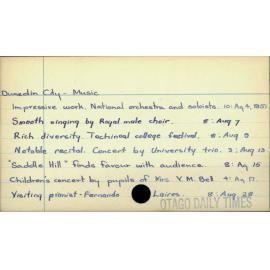 Dunedin City - Music
Impressive work. National orchestra and soloists. 10: Aug 4, 1951
Smooth singing by Royal male choir. 8: Aug 7
Rich diversity. Techincal college festival. 8: Aug 9
Notable recital. Concert by University trio. 3: Aug 13
"Saddle Hill" finds favour with audience. 8: Ag 15
Children's concert by pupils of Mrs V.M. Bell 4: Ag 17
Visiting pianist - Fernando Laires. 8: Aug 28
OTAGO DAILY TIMES